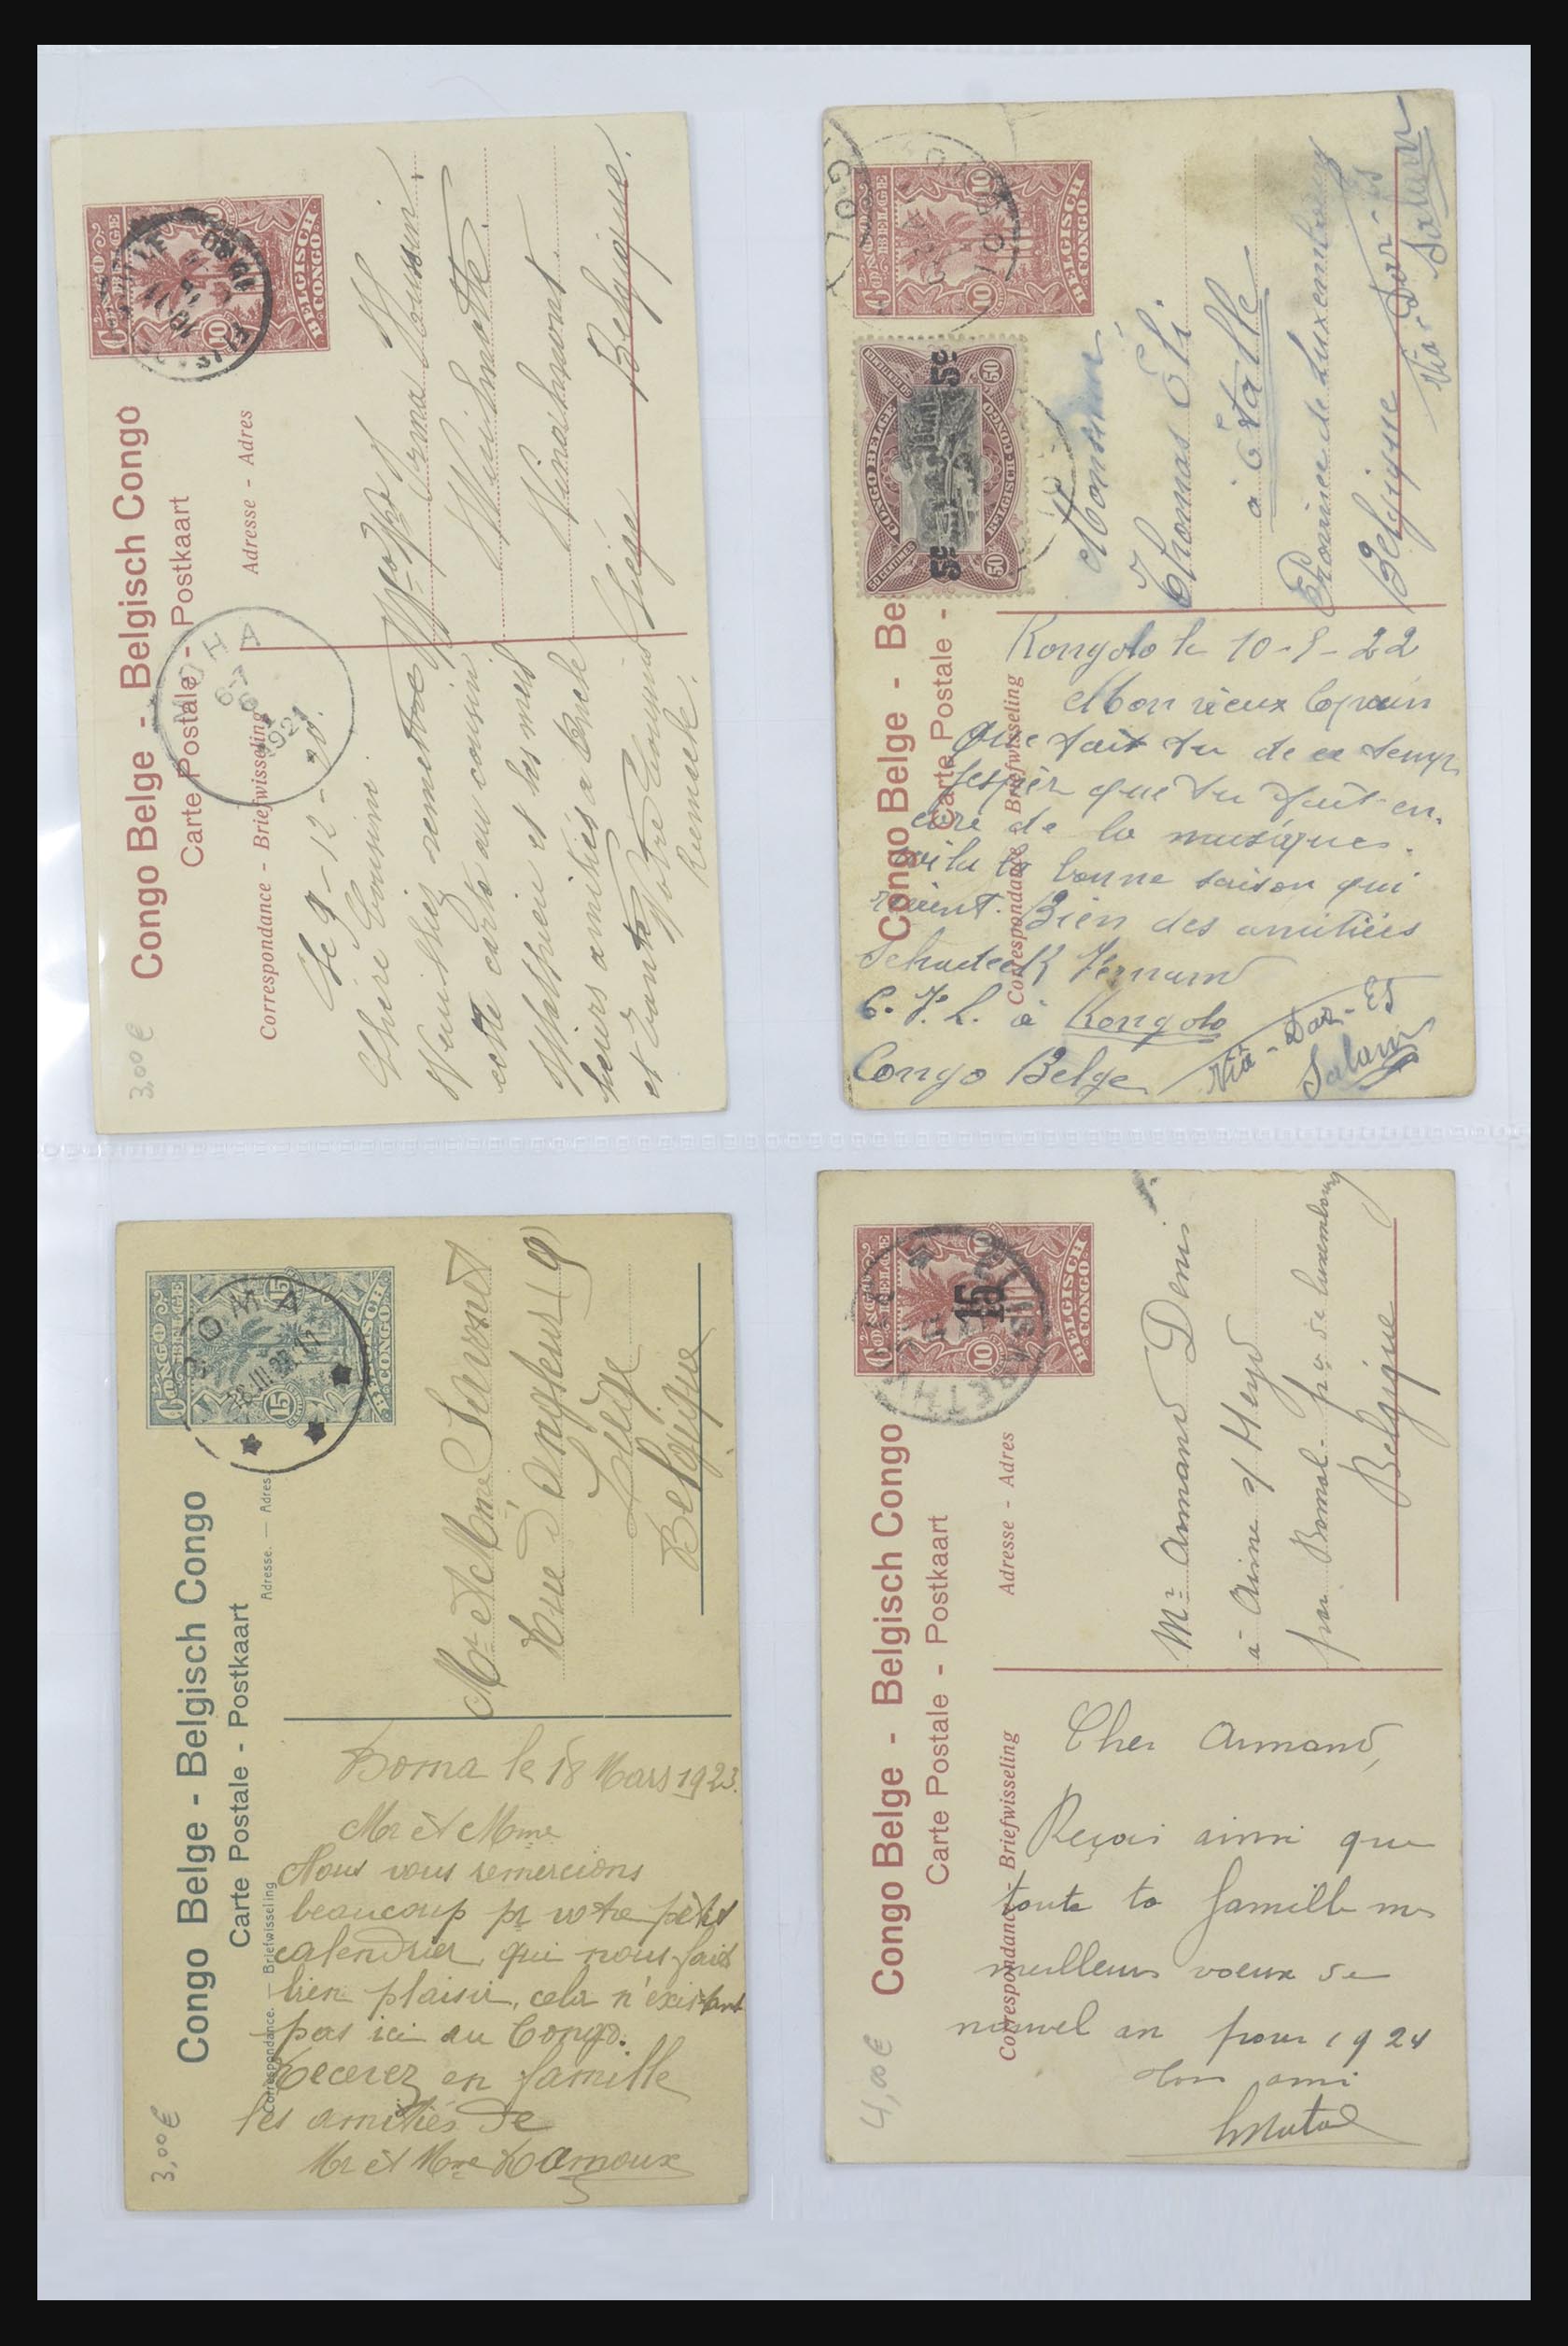 Congo Belge - Belgisch Congo
Carte Postale - Postkaart
Correspondance - Briefwisseling
Adresse - Adres
CONGO BELGE
BELGISCH CONGO
10
MOHA
1921
Le 9-12-20.
Chère Cousine.
Veuillez remettre
cette carte au cousin
Mathieu et les meil
leurs amitiés à Oncle
et tante Votre Cousin
Liége Belgique.
3,00 €
Congo Belge - Be
Carte Postale -
Correspondance Briefwisseling
CONGO BELGE
BELGISCH CONGO
10
CONGO BELGE
BELGISCH-CONGO
50 CENTIMES
50
5c 5c
Monsieur
Thomas Éli.
à Étalle
Province de Luxembourg
Belgique
Via - Dar - Es
Salam
Kongolo le 10-5-22
Mon vieux Copain
Que fait tu de ce temps
J'espèr que tu fait en-
core de la musique.
voila la bonne saison qui
revient. Bien des amitiés
C. F. L. à Kongolo
Congo Belge
Via - Dar - Es
Salam
Congo Belge - Belgisch Congo
Carte Postale - Postkaart
Correspondance. — Briefwisseling
Adresse. — Adres
CONGO BELGE
BELGISCH CONGO
15
BOMA
Mr et Mme
Rue d'Angleur 19
Liége
Belgique
Boma le 18 Mars 1923.
Mr et Mme
Nous vous remercions
beaucoup pr votre petit
calendrier, qui nous fait
bien plaisir, cela n'existant
pas ici au Congo.
Recevez en famille
les amitiés de
Mr et Mme Lamoux
3,00 €
Congo Belge - Belgisch Congo
Carte Postale - Postkaart
Correspondance - Briefwisseling
Adresse - Adres
CONGO BELGE
BELGISCH CONGO
10
15
Mr Armand Denis
à Aisne s/ Heyd
par Bomal - pr. de Luxembourg
Belgique
Cher Armand,
Reçois ainsi que
toute ta famille mes
meilleurs voeux de
nouvel an pour 1924
Ton ami
4,00 €